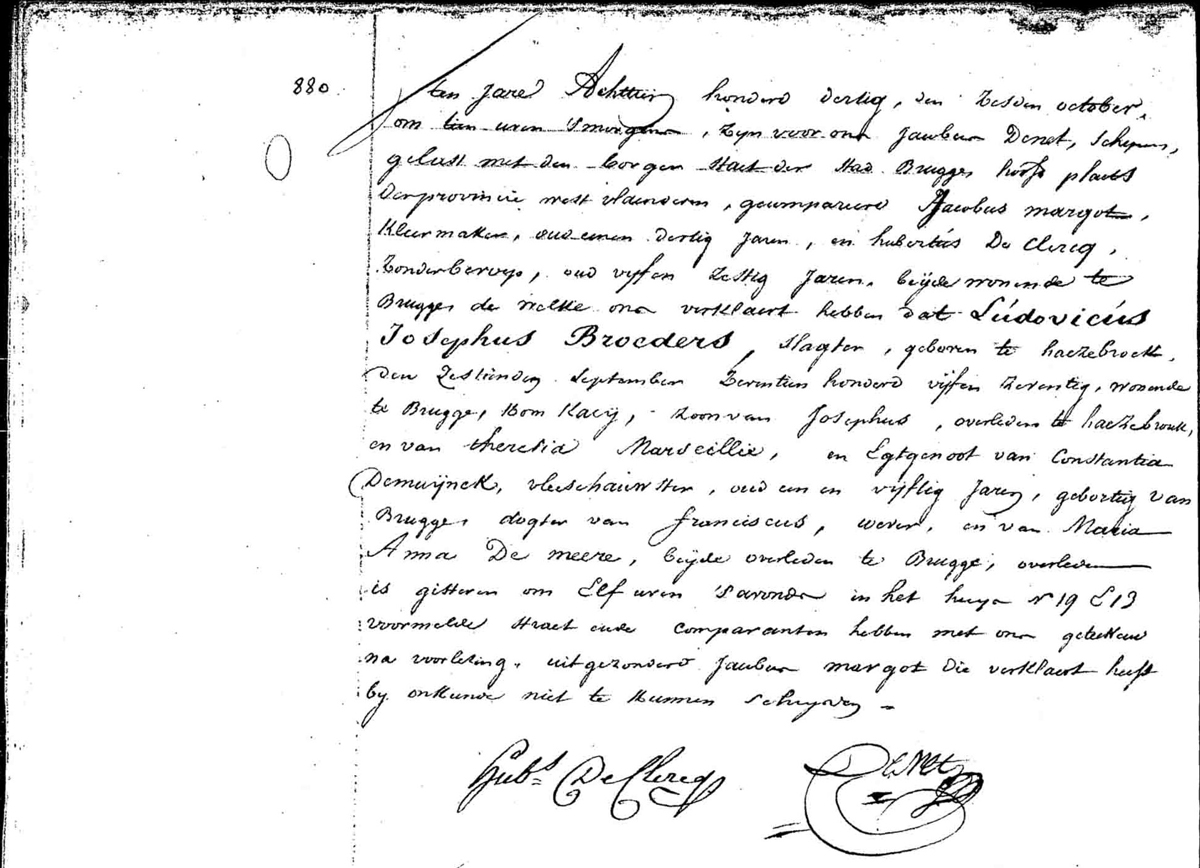 880
ten Jare Achttien honderd dertig, den Zesden october,
om tien uren Smorgens, Zyn voor ons Jacobus Denet, Schepen,
gelast met den borgen Staet der Stad Brugge, hoofd plaets
der provincie west vlaenderen, gecompareerd Jacobus margot,
Kleermaker, oud eenen dertig Jaren, en hubertus De Clercq,
Zonder beroep, oud vyf en Zestig Jaren, beÿde wonende te
Brugge de welke ons verklaert hebben dat Lúdovicús
Josephus Broeders, Slagter, geboren te haezebroek,
den Zestienden September Zeventien honderd vyf en Zeventig, wonende
te Brugge, Kom Kaeÿ, Zoon van Josephus, overleden te haezebrouk,
en van theresia Marseillie, en Egtgenoot van Constantia
Demuÿnck, vleeschauwster, oud een en vyftig Jaren, gebortig van
Brugge, dogter van franciscus, wever, en van Maria
Anna De meere, beÿde overleden te Brugge, overleden
is gisteren om Elf uren S'avonds in het huys N 19 E 13
voormelde Straet ende Comparanten hebben met ons geteekend
na voorlezing, uitgezonderd Jacobus margot die verklaert heeft
by onkunde niet te Kunnen Schryven -
Hub.s De Clercq Denet